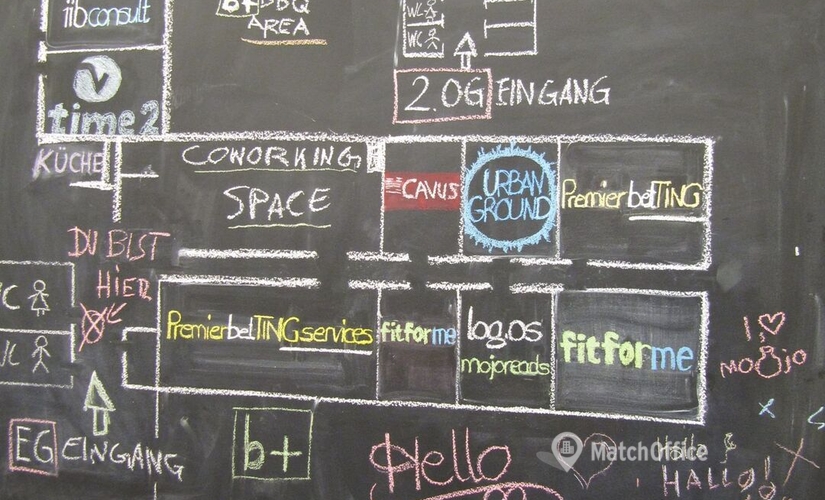 iibconsult
b+ BBQ
AREA
WC
WC
V
time2
2.OG EINGANG
KÜCHE
COWORKING
SPACE
CAVUS
URBAN
GROUND
PremierbetTING
DU BIST
HIER
WC
WC
PremierbetTINGservices
fitforme
log.os
mojoreads
fitforme
I ♡
MOJO
EG EINGANG
b+
Hello
MatchOffice
Hallo
HALLO!